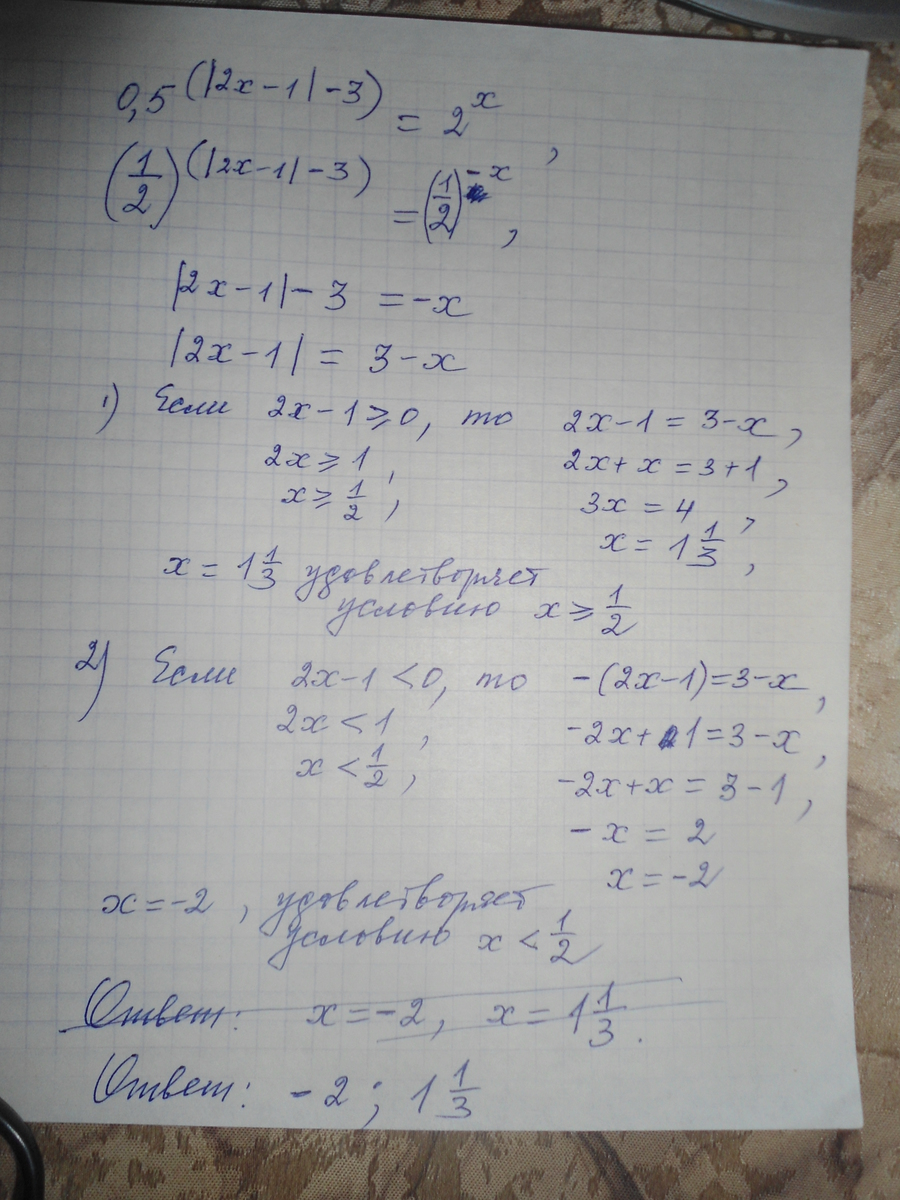 0,5^(|2x-1|-3) = 2^x,
(1/2)^(|2x-1|-3) = (1/2)^-x,
|2x-1|-3 = -x
|2x-1| = 3-x
1) Если 2x-1≥0, то 2x-1 = 3-x,
2x≥1, 2x+x = 3+1,
x≥1/2, 3x = 4,
x = 1 1/3,
x = 1 1/3 удовлетворяет
условию x≥1/2
2) Если 2x-1<0, то -(2x-1)=3-x,
2x<1, -2x+1=3-x,
x<1/2, -2x+x = 3-1,
-x = 2
x=-2
x=-2, удовлетворяет
условию x<1/2
Ответ: x=-2, x=1 1/3.
Ответ: -2; 1 1/3